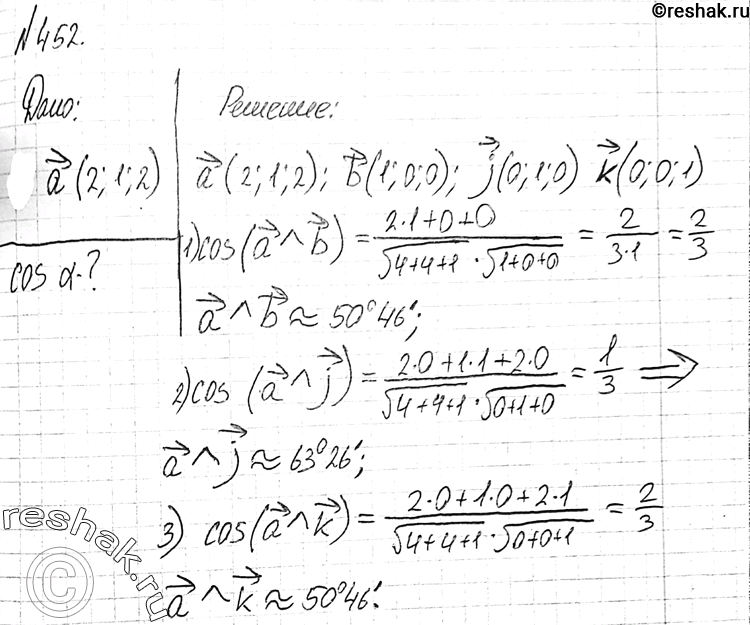 ©reshak.ru
№452.
Дано:
Решение:
a⃗ (2; 1; 2)
a⃗ (2; 1; 2); b⃗ (1; 0; 0); j⃗ (0; 1; 0) k⃗ (0; 0; 1)
cos α-?
1) cos (a⃗ ^ b⃗) = (2·1+0+0)/(√(4+4+1) · √(1+0+0)) = 2/(3·1) = 2/3
a⃗ ^ b⃗ ≈ 50°46';
2) cos (a⃗ ^ j⃗) = (2·0+1·1+2·0)/(√(4+4+1) · √(0+1+0)) = 1/3 ⟹
a⃗ ^ j⃗ ≈ 63°26';
3) cos (a⃗ ^ k⃗) = (2·0+1·0+2·1)/(√(4+4+1) · √(0+0+1)) = 2/3
a⃗ ^ k⃗ ≈ 50°46'.
reshak.ru
©